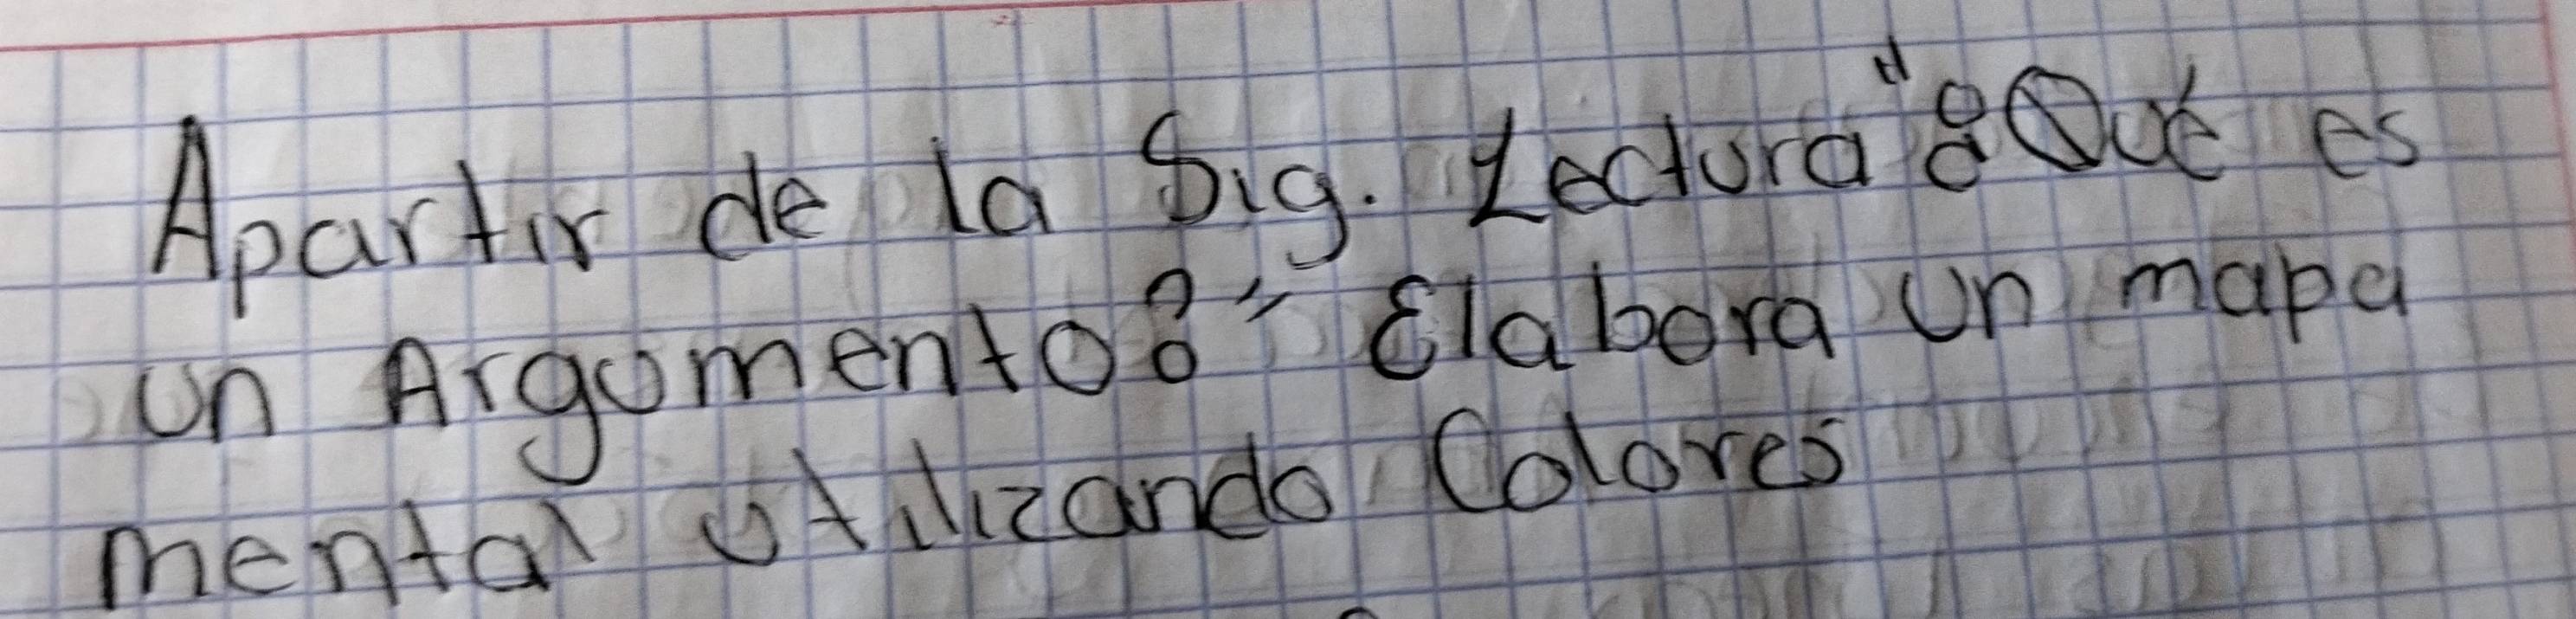 Apartir de la Sig. Lectura "¿Qué es
un Argumento?" Elabora un mapa
mental utilizando Colores